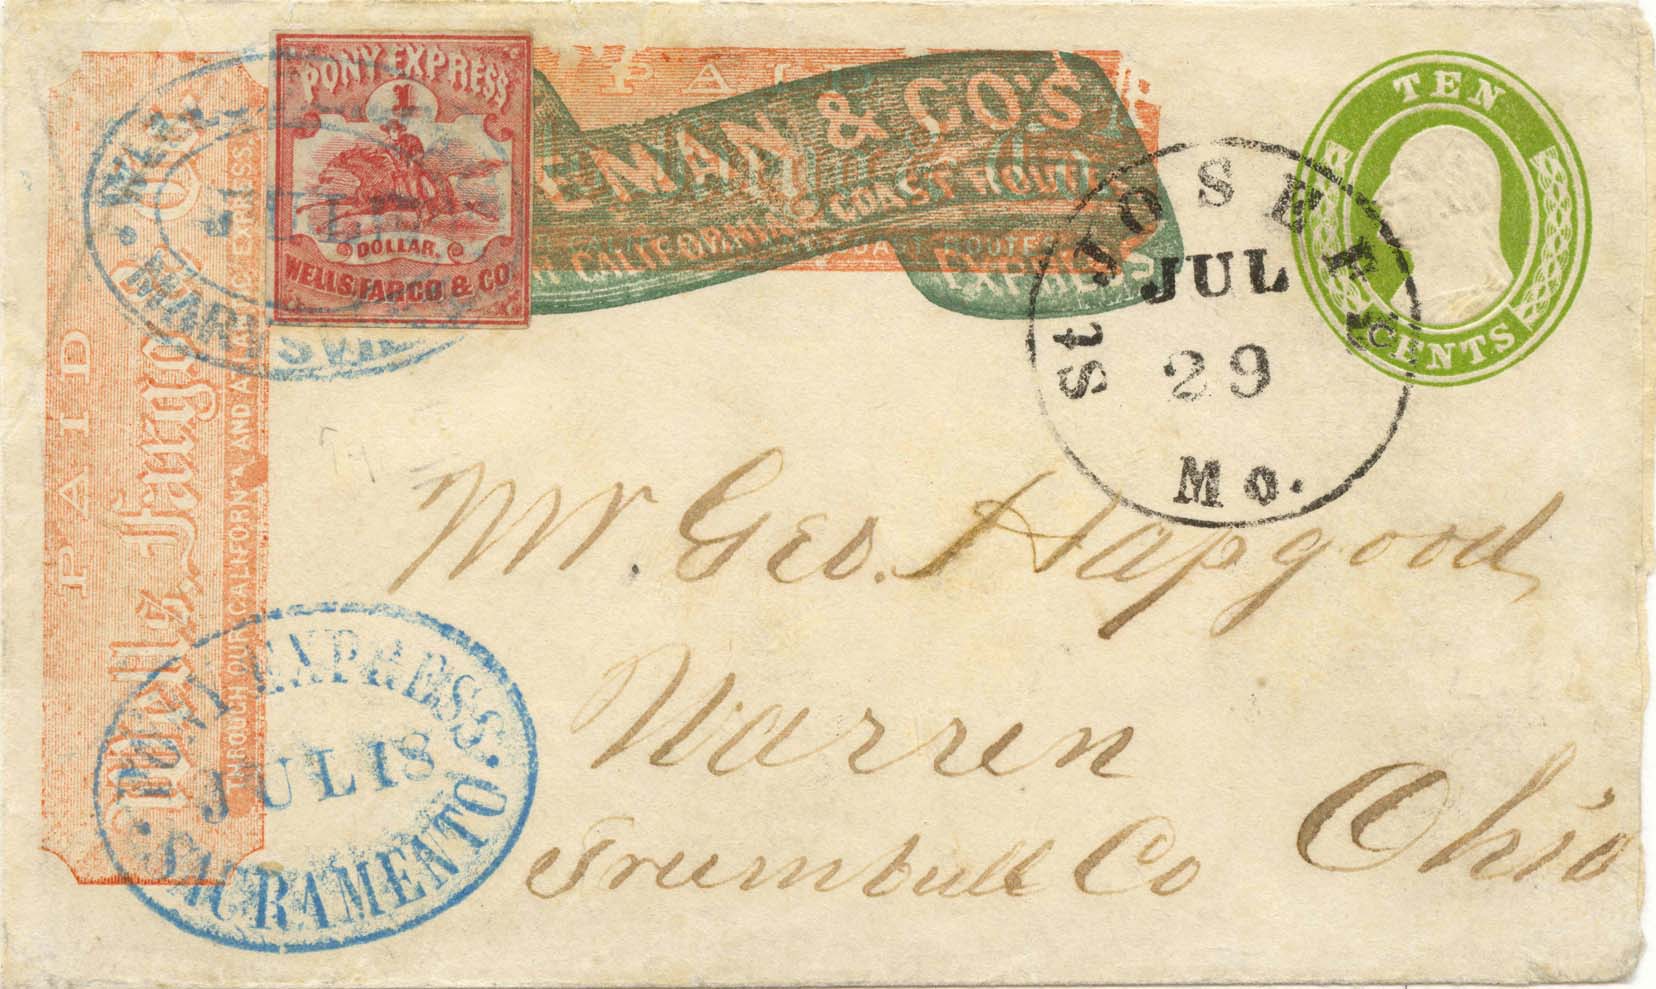 PONY EXPRESS
1
DOLLAR.
WELLS, FARGO & CO.
MAN & CO'S
CALIFORNIA & COAST ROUTES
EXPRESS
TEN
CENTS
St JOSEPH
JUL
29
Mo.
MARYSVILLE
JUL
PAID
Wells, Fargo & Co
THROUGH OUR CALIFORNIA AND ATLANTIC EXPRESS.
Mr Geo. Hapgood
Warren
Trumbull Co Ohio
PONY EXPRESS
JUL 18
SACRAMENTO